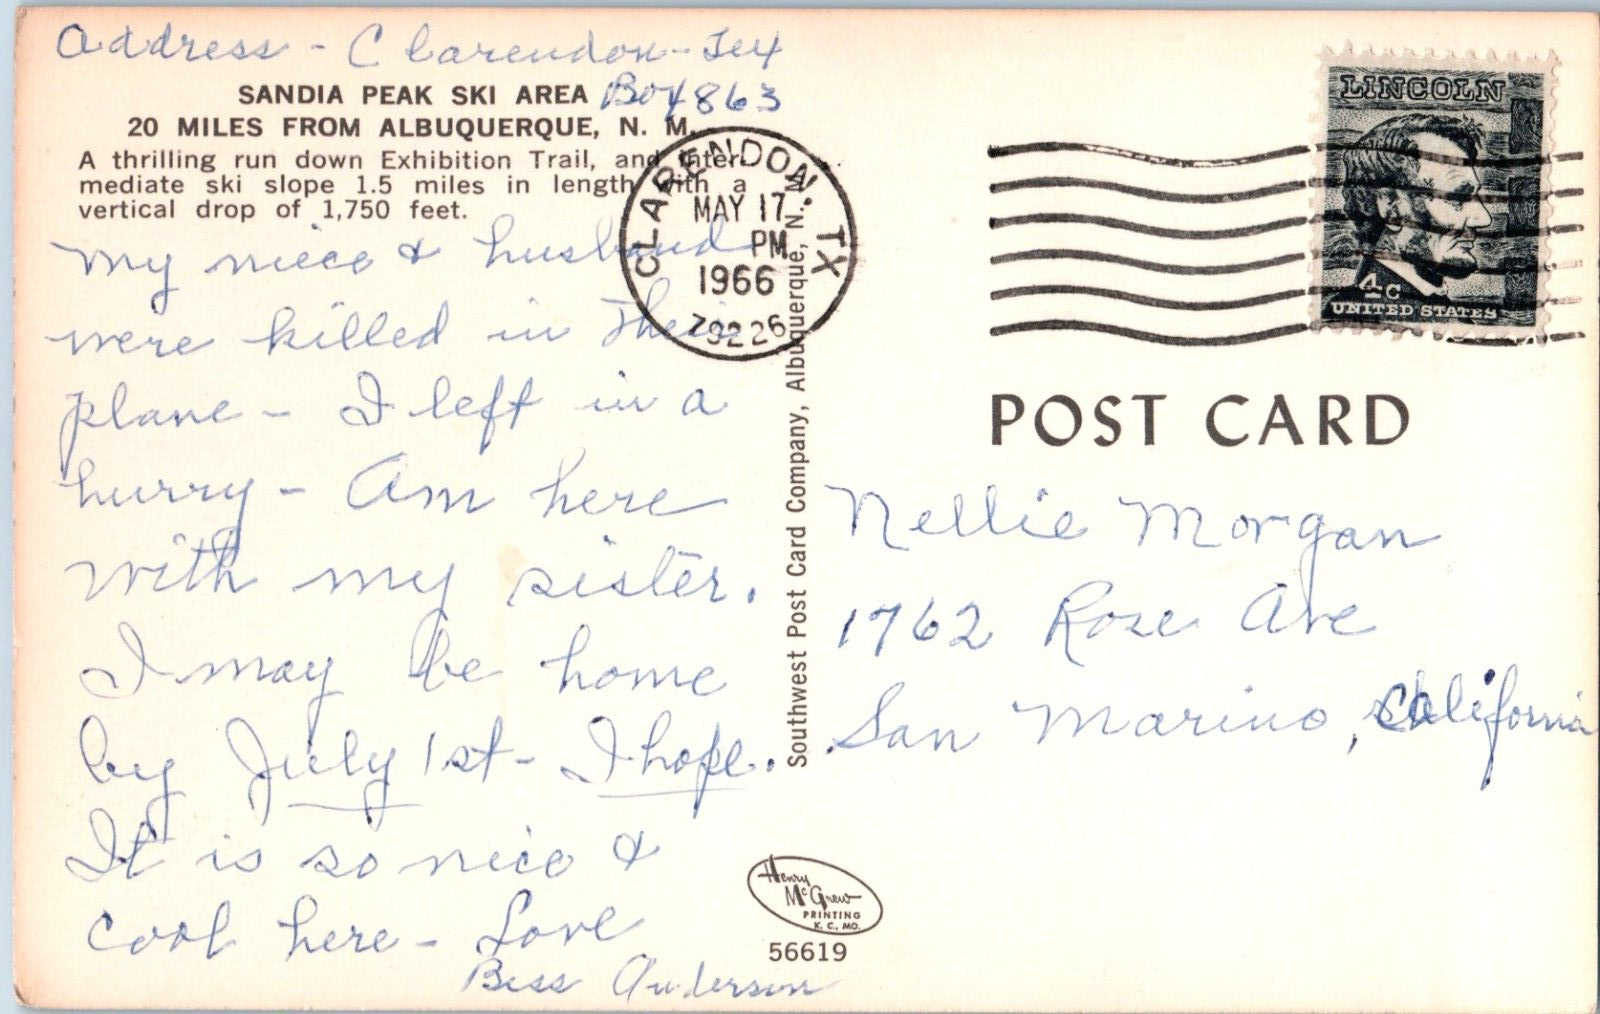 Address - Clarendon - Tex
Box 863
SANDIA PEAK SKI AREA
20 MILES FROM ALBUQUERQUE, N. M.
A thrilling run down Exhibition Trail, and inter-
mediate ski slope 1.5 miles in length with a
vertical drop of 1,750 feet.
My niece & husband
were killed in their
plane - I left in a
hurry - Am here
with my sister.
I may be home
by July 1st - I hope.
It is so nice &
cool here - Love
Bess Anderson
CLARENDON, TX
MAY 17
PM
1966
79226
Southwest Post Card Company, Albuquerque, N. M.
Henry
McGrew
PRINTING
K. C., MO.
56619
LINCOLN
4c
UNITED STATES
POST CARD
Nellie Morgan
1762 Rose Ave
San Marino, California